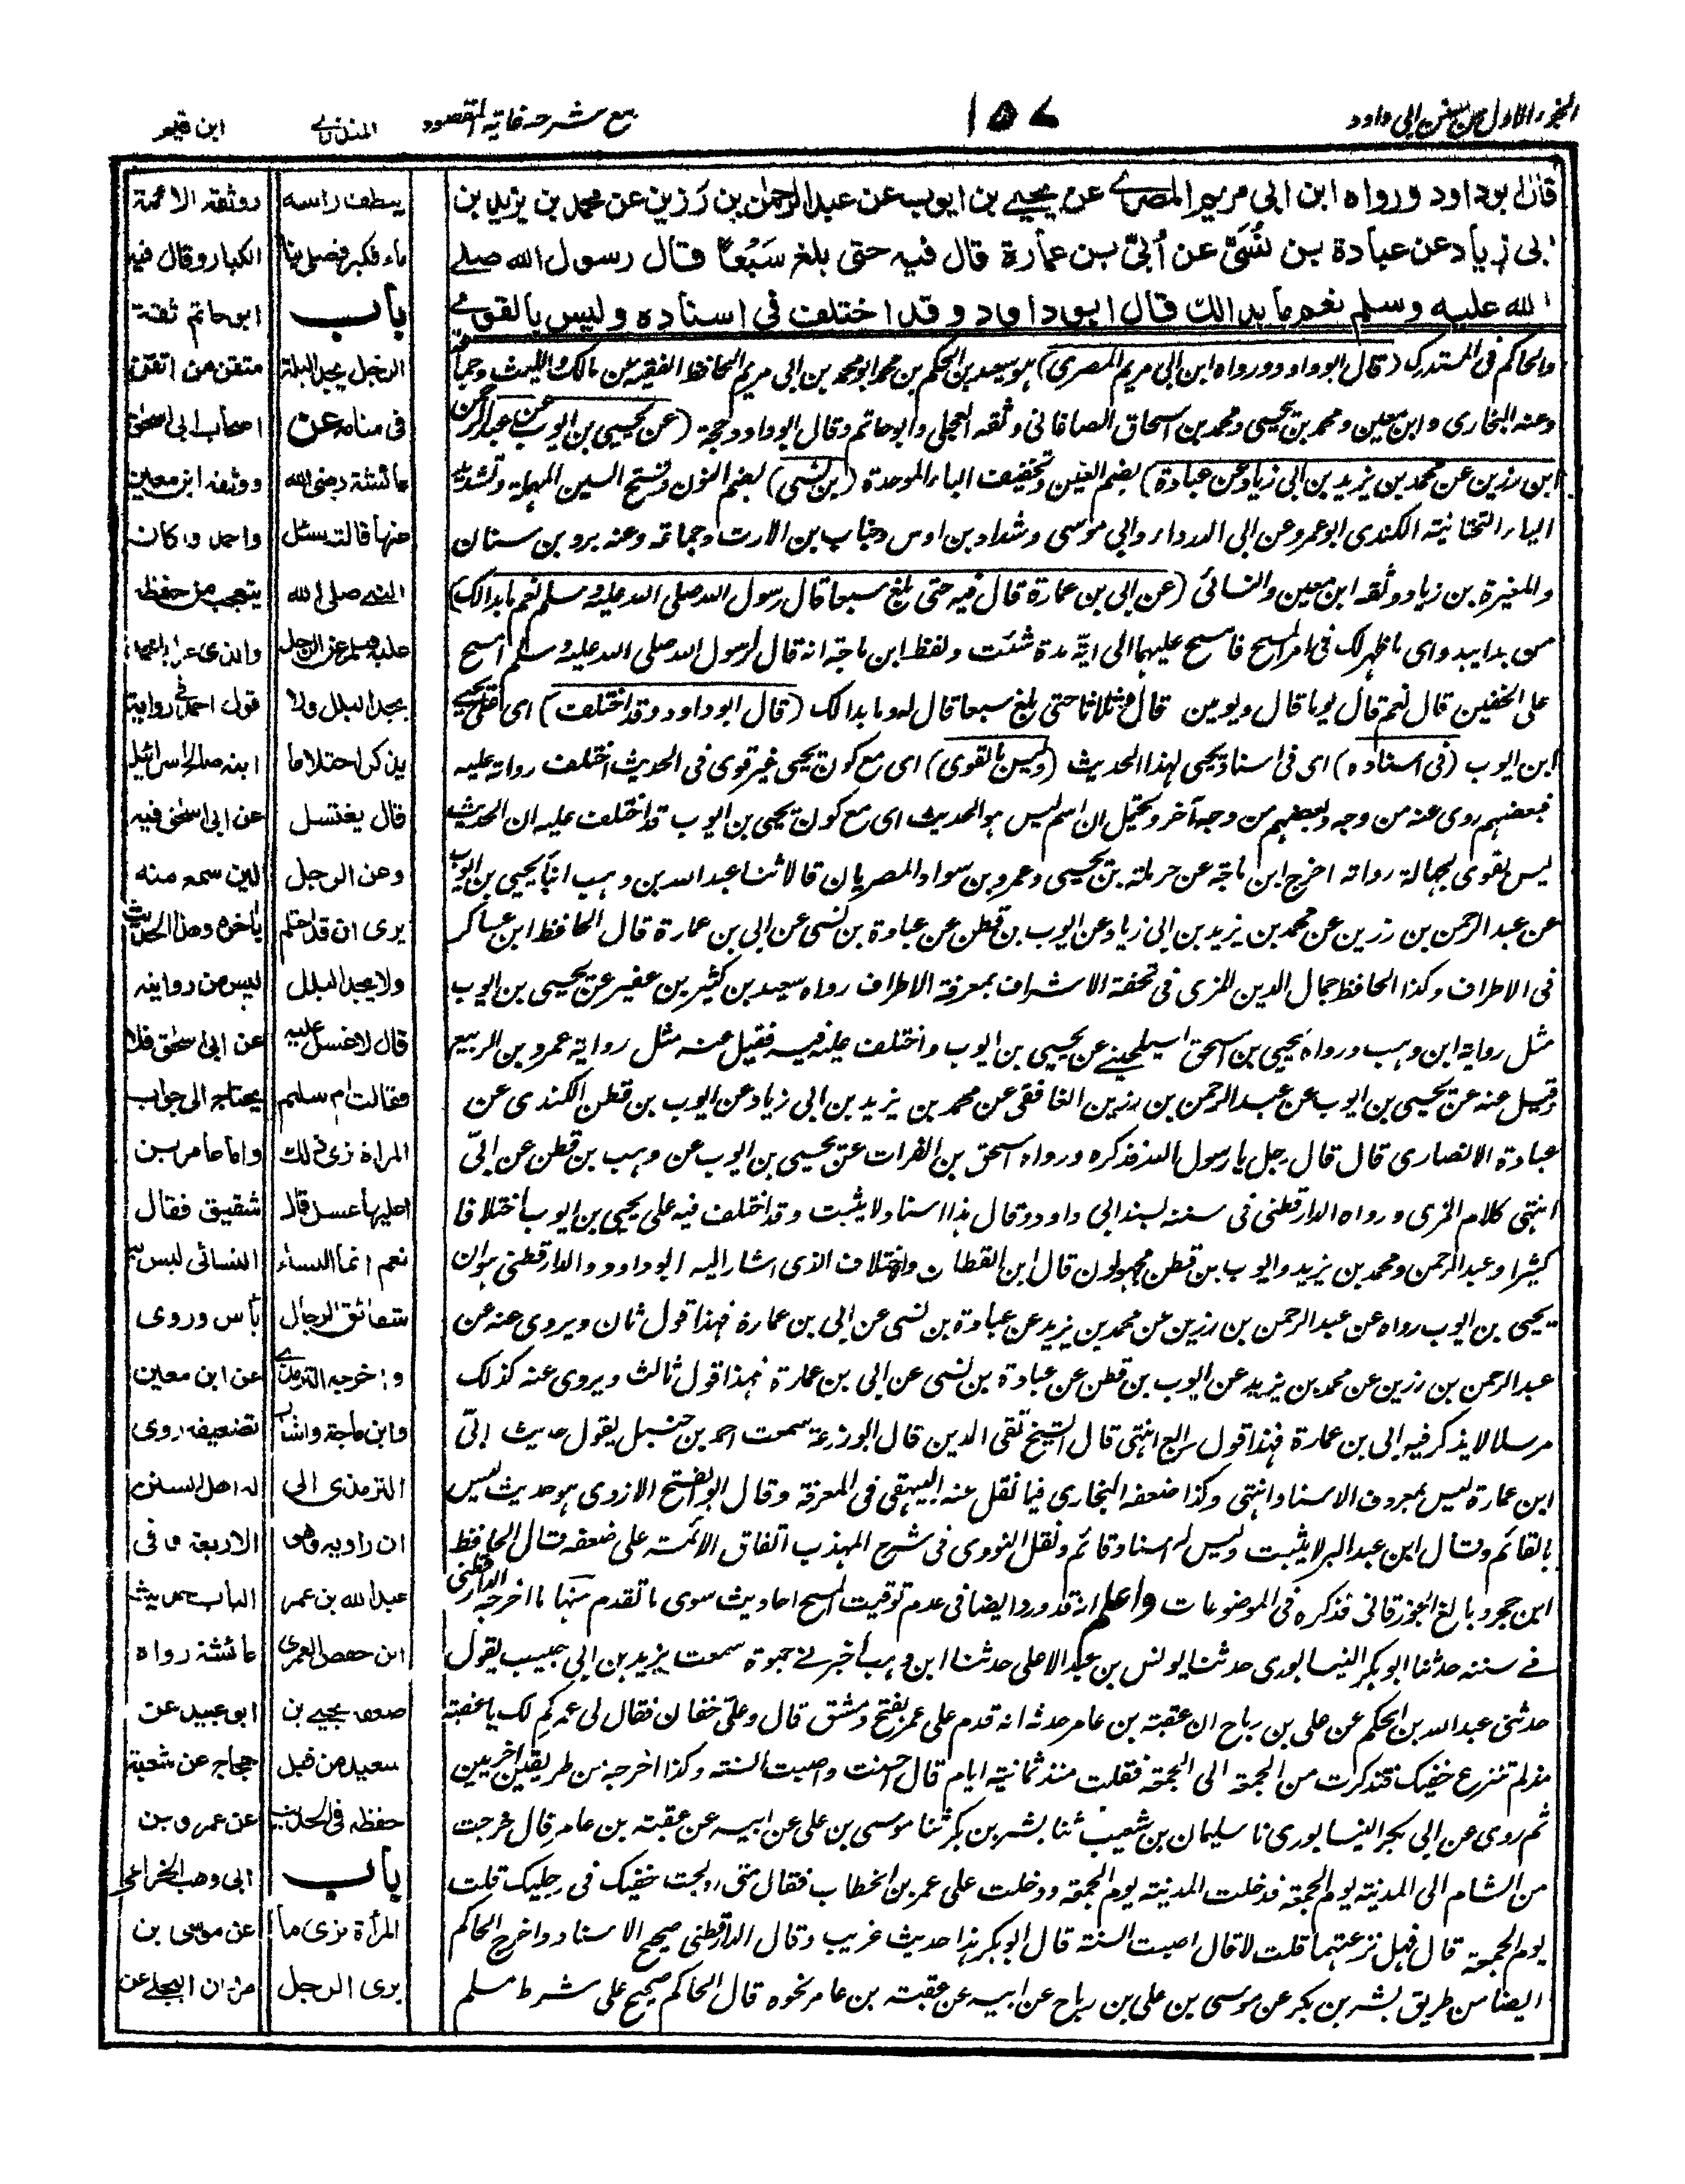 الجزء الاول من سنن ابى داود
١٥٧
مع شرحه غاية المقصود
المنذرى
ابن قيم
قال ابوداود ورواه ابن ابى مريم المصرى عن يحيى بن ايوب عن عبد الرحمٰن بن رَزين عن محمد بن يزيد بن
ابى زياد عن عبادة بن نُسَىّ عن اُبَىّ بن عمارة قال فيه حتى بلغ سَبْعًا قال رسول الله صلى
الله عليه وسلم نعم ما بدا لك قال ابو داود وقد اختلف فى اسناده وليس بالقوى
والحاكم فى المستدرك (قال ابو داود ورواه ابن ابى مريم المصرى) هو سعيد بن الحكم بن محمد ابو محمد بن ابى مريم الحافظ الفقيه عن مالك والليث وجماعة
وعنه البخارى وابن معين ومحمد بن يحيى ومحمد بن اسحاق الصاغانى وثقه العجلى وابو حاتم وقال ابو داود حجة (عن يحيى بن ايوب عن عبد الرحمن
ابن رزين عن محمد بن يزيد بن ابى زياد عن عبادة) بضم العين وتخفيف الباء الموحدة (بن نسى) بضم النون وفتح السين المهملة وتشديد
الياء التحتانية الكندى ابو عمرو عن ابى الدرداء وابى موسى وشداد بن اوس وخباب بن الارت وجماعة وعنه برد بن سنان
والمغيرة بن زياد وثقه ابن معين والنسائى (عن ابى بن عمارة قال فيه حتى بلغ سبعا قال رسول الله صلى الله عليه وسلم نعم ما بدا لك)
من بدا يبدو اى ما ظهر لك فى امر المسح فامسح عليهما الى اية مدة شئت ولفظ ابن ماجة انه قال لرسول الله صلى الله عليه وسلم امسح
على الخفين قال نعم قال يوما قال ويومين قال وثلاثا حتى بلغ سبعا قال له وما بدا لك (قال ابو داود وقد اختلف) اى على يحيى
ابن ايوب (فى اسناده) اى فى اسناد يحيى لهذا الحديث (وليس بالقوى) اى مع كون يحيى غير قوى فى الحديث اختلف رواته عليه
فبعضهم روى عنه من وجه وبعضهم من وجه آخر ويحتمل ان اسم ليس هو الحديث اى مع كون يحيى بن ايوب قد اختلف عليه ان الحديث
ليس بقوى بجهالة رواته اخرج ابن ماجة عن حرملة بن يحيى وعمرو بن سواد المصريان قالا ثنا عبد الله بن وهب انبأ يحيى بن ايوب
عن عبد الرحمن بن رزين عن محمد بن يزيد بن ابى زياد عن ايوب بن قطن عن عبادة بن نسى عن ابى بن عمارة قال الحافظ ابن عساكر
فى الاطراف وكذا الحافظ جمال الدين المزى فى تحفة الاشراف بمعرفة الاطراف رواه سعيد بن كثير بن عفير عن يحيى بن ايوب
مثل رواية ابن وهب ورواه يحيى بن اسحق السيلحينى عن يحيى بن ايوب واختلف عليه فيه فقيل عنه مثل رواية عمرو بن الربيع
وقيل عنه عن يحيى بن ايوب عن عبد الرحمن بن رزين الغافقى عن محمد بن يزيد بن ابى زياد عن ايوب بن قطن الكندى عن
عبادة الانصارى قال قال رجل يا رسول الله فذكره ورواه اسحق بن الفرات عن يحيى بن ايوب عن وهب بن قطن عن ابىّ
انتهى كلام المزى ورواه الدارقطنى فى سننه بسند ابى داود وقال هذا اسناد لا يثبت وقد اختلف فيه على يحيى بن ايوب اختلافا
كثيرا وعبد الرحمن ومحمد بن يزيد وايوب بن قطن مجهولون قال ابن القطان والاختلاف الذى اشار اليه ابو داود والدارقطنى هو ان
يحيى بن ايوب رواه عن عبد الرحمن بن رزين عن محمد بن يزيد عن عبادة بن نسى عن ابى بن عمارة فهذا قول ثان ويروى عنه عن
عبد الرحمن بن رزين عن محمد بن يزيد عن ايوب بن قطن عن عبادة بن نسى عن ابى بن عمارة فهذا قول ثالث ويروى عنه كذلك
مرسلا لا يذكر فيه ابى بن عمارة فهذا قول رابع انتهى قال الشيخ تقى الدين قال ابو زرعة سمعت احمد بن حنبل يقول حديث ابىّ
ابن عمارة ليس بمعروف الاسناد انتهى وكذا ضعفه البخارى فيما نقل عنه البيهقى فى المعرفة وقال ابو الفتح الازدى هو حديث ليس
بالقائم وقال ابن عبد البر لا يثبت وليس له اسناد قائم ونقل النووى فى شرح المهذب اتفاق الائمة على ضعفه قال الحافظ
ابن حجر وبالغ الجوزقانى فذكره فى الموضوعات واعلم انه قد ورد ايضا فى عدم توقيت المسح احاديث سوى ما تقدم منها ما اخرجه الدارقطنى
فى سننه حدثنا ابو بكر النيسابورى حدثنا يونس بن عبد الاعلى حدثنا ابن وهب اخبرنى حيوة سمعت يزيد بن ابى حبيب يقول
حدثنى عبد الله بن الحكم عن على بن رباح ان عقبة بن عامر حدثه انه قدم على عمر بفتح دمشق قال وعلىّ خفان فقال لى عمر كم لك يا عقبة
منذ لم تنزع خفيك فتذكرت من الجمعة الى الجمعة فقلت منذ ثمانية ايام قال احسنت واصبت السنة وكذا اخرجه من طريقين اخريين
ثم روى عن ابى بكر النيسابورى نا سليمان بن شعيب ثنا بشر بن بكر ثنا موسى بن على عن ابيه عن عقبة بن عامر قال خرجت
من الشام الى المدينة يوم الجمعة فدخلت المدينة يوم الجمعة ودخلت على عمر بن الخطاب فقال متى اولجت خفيك فى رجليك قلت
يوم الجمعة قال فهل نزعتهما قلت لا قال اصبت السنة قال ابو بكر هذا حديث غريب وقال الدارقطنى صحيح الاسناد واخرج الحاكم
ايضا من طريق بشر بن بكر عن موسى بن على بن رباح عن ابيه عن عقبة بن عامر نحوه قال الحاكم صحيح على شرط مسلم
يسطف راسه
ماء فكبر فصلى بنا
باب
الرجل يجد البلة
فى منامه عن
عائشة رضى الله
عنها قالت سئل
النبى صلى الله
عليه وسلم عن الرجل
يجد البلل ولا
يذكر احتلاما
قال يغتسل
وعن الرجل
يرى ان قد احتلم
ولا يجد البلل
قال لا غسل عليه
فقالت ام سليم
المراة ترى ذلك
اعليها غسل قال
نعم انما النساء
شقائق الرجال
واخرجه الترمذى
وابن ماجة واشار
الترمذى الى
ان راويه وهو
عبد الله بن عمر
ابن حفص العمرى
ضعفه يحيى بن
سعيد من قبل
حفظه فى الحديث
باب
المرأة ترى ما
يرى الرجل
ووثقه الائمة
الكبار وقال فيه
ابو حاتم ثقة
متقن من اتقن
اصحاب ابى اسحق
ووثقه ابن معين
واحمد وكان
يتعجب من حفظه
قول احمد فى رواية
ابنه صالح اسرائيل
عن ابى اسحق فيه
لين سمع منه
باخره وهذا الحديث
ليس من روايته
عن ابى اسحق فلا
يحتاج الى جواب
واما عامر بن
شقيق فقال
النسائى ليس به
بأس وروى
عن ابن معين
تضعيفه روى
له اهل السنن
الاربعة وفى
الباب حديث
عائشة رواه
ابو عبيد عن
حجاج عن شعبة
عن عمرو بن
ابى وهب الخزاعى
عن موسى بن
ثروان البجلى عن